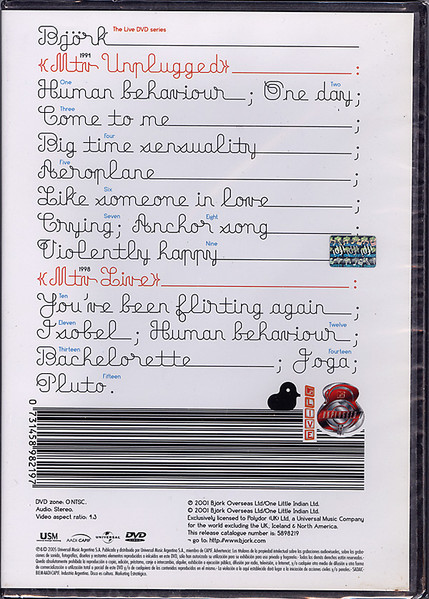 Björk The Live DVD series
1994
«Mtv Unplugged» :
One Two
Human behaviour ; One day ;
Three
Come to me ;
Four
Big time sensuality ;
Five
Aeroplane ;
Six
Like someone in love ;
Seven Eight
Crying ; Anchor song ;
Nine
Violently happy ;
1998
«Mtv Live» :
Ten
You've been flirting again ;
Eleven Twelve
Isobel ; Human behaviour ;
Thirteen Fourteen
Bachelorette ; Joga ;
Fifteen
Pluto .
LIVE
0 731458 982197
DVD zone: 0 NTSC.
Audio: Stereo.
Video aspect ratio: 4:3
℗ 2001 Bjork Overseas Ltd/One Little Indian Ltd.
© 2001 Bjork Overseas Ltd/One Little Indian Ltd.
Exclusively licensed to Polydor (UK) Ltd, a Universal Music Company
for the world excluding the UK, Iceland & North America.
This release catalogue number is: 5898219
¬ go to: http://www.bjork.com
USM AADI CAPIF UNIVERSAL DVD